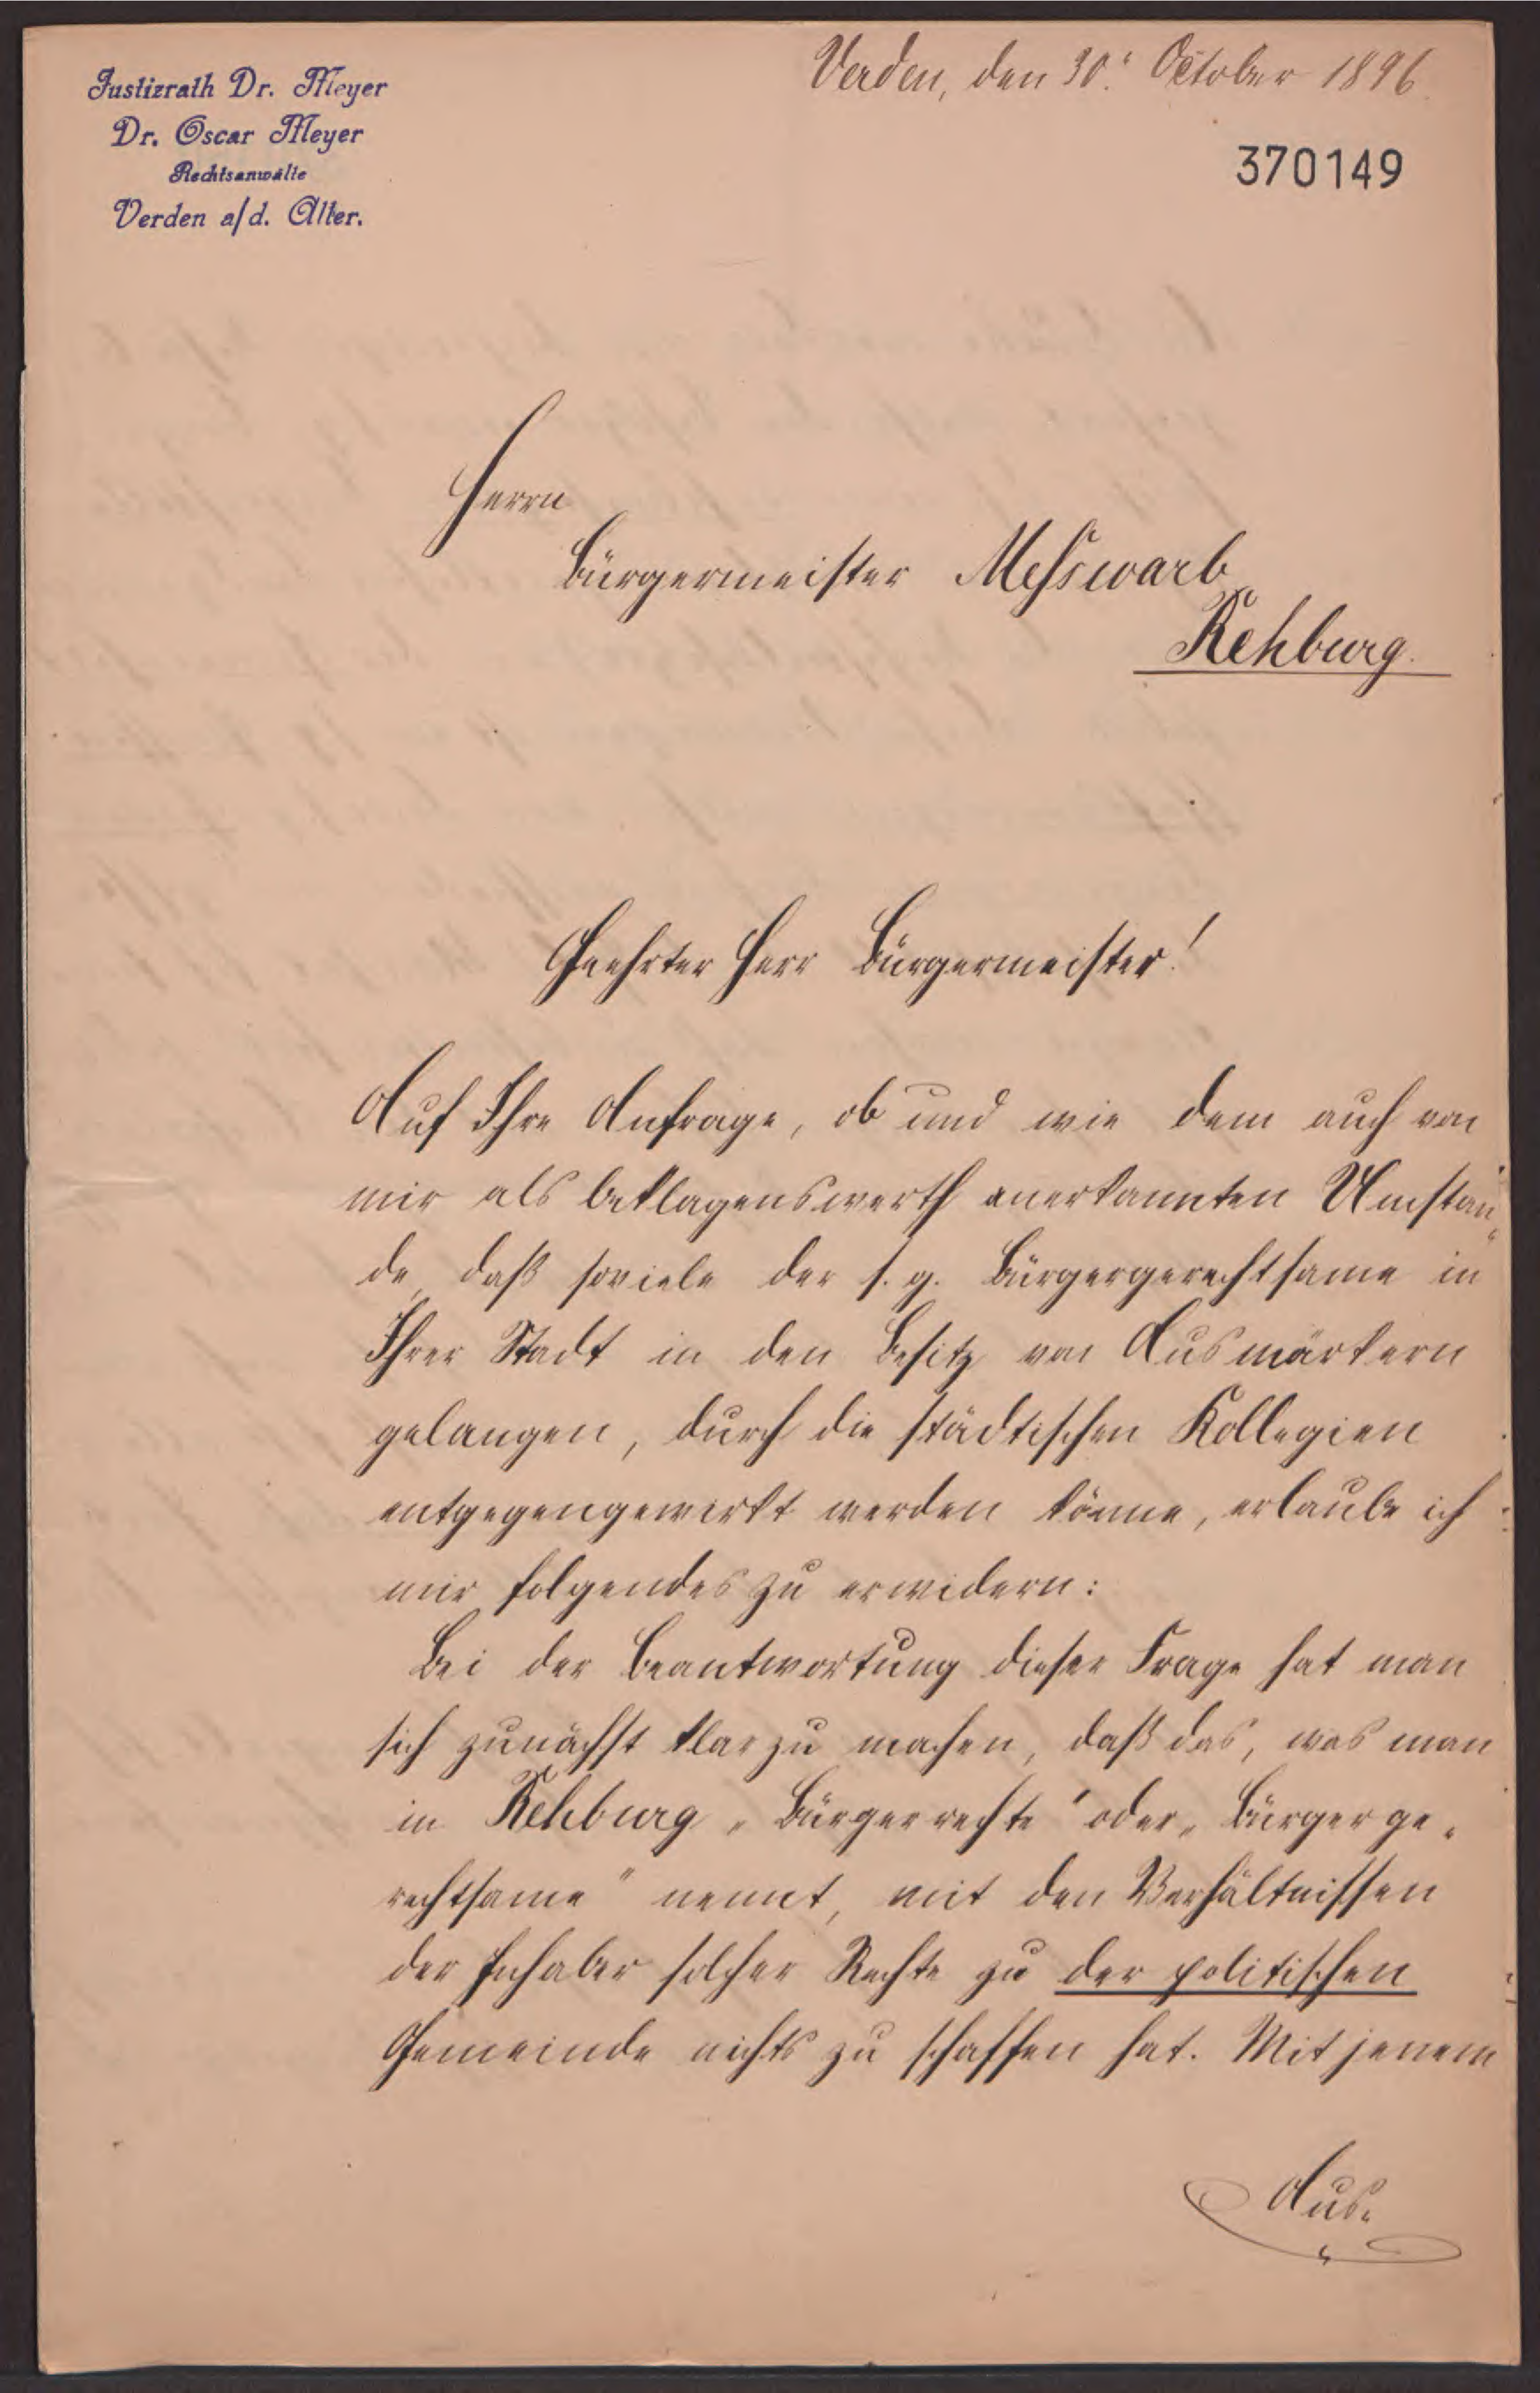 Justizrath Dr. Meyer
Dr. Oscar Meyer
Rechtsanwälte
Verden a/d. Aller.
Verden, den 30. October 1896.
370149
Herrn
Bürgermeister Messwarb
Rehburg.
Geehrter Herr Bürgermeister!
Auf Ihre Anfrage, ob und wie dem auch von
mir als beklagenswerth anerkannten Umstan„
de, daß soviele der s. g. Bürgergerechtsame in
Ihrer Stadt in den Besitz von Ausmärkern
gelangen, durch die städtischen Kollegien
entgegengewirkt werden könne, erlaube ich
mir folgendes zu erwidern:
Bei der Beantwortung dieser Frage hat man
sich zunächst klar zu machen, daß das, was man
in Rehburg „Bürgerrechte" oder „Bürgerge„
rechtsame" nennt, mit den Verhältnissen
der Inhaber solcher Rechte zu der politischen
Gemeinde nichts zu schaffen hat. Mit jenem
Aus„